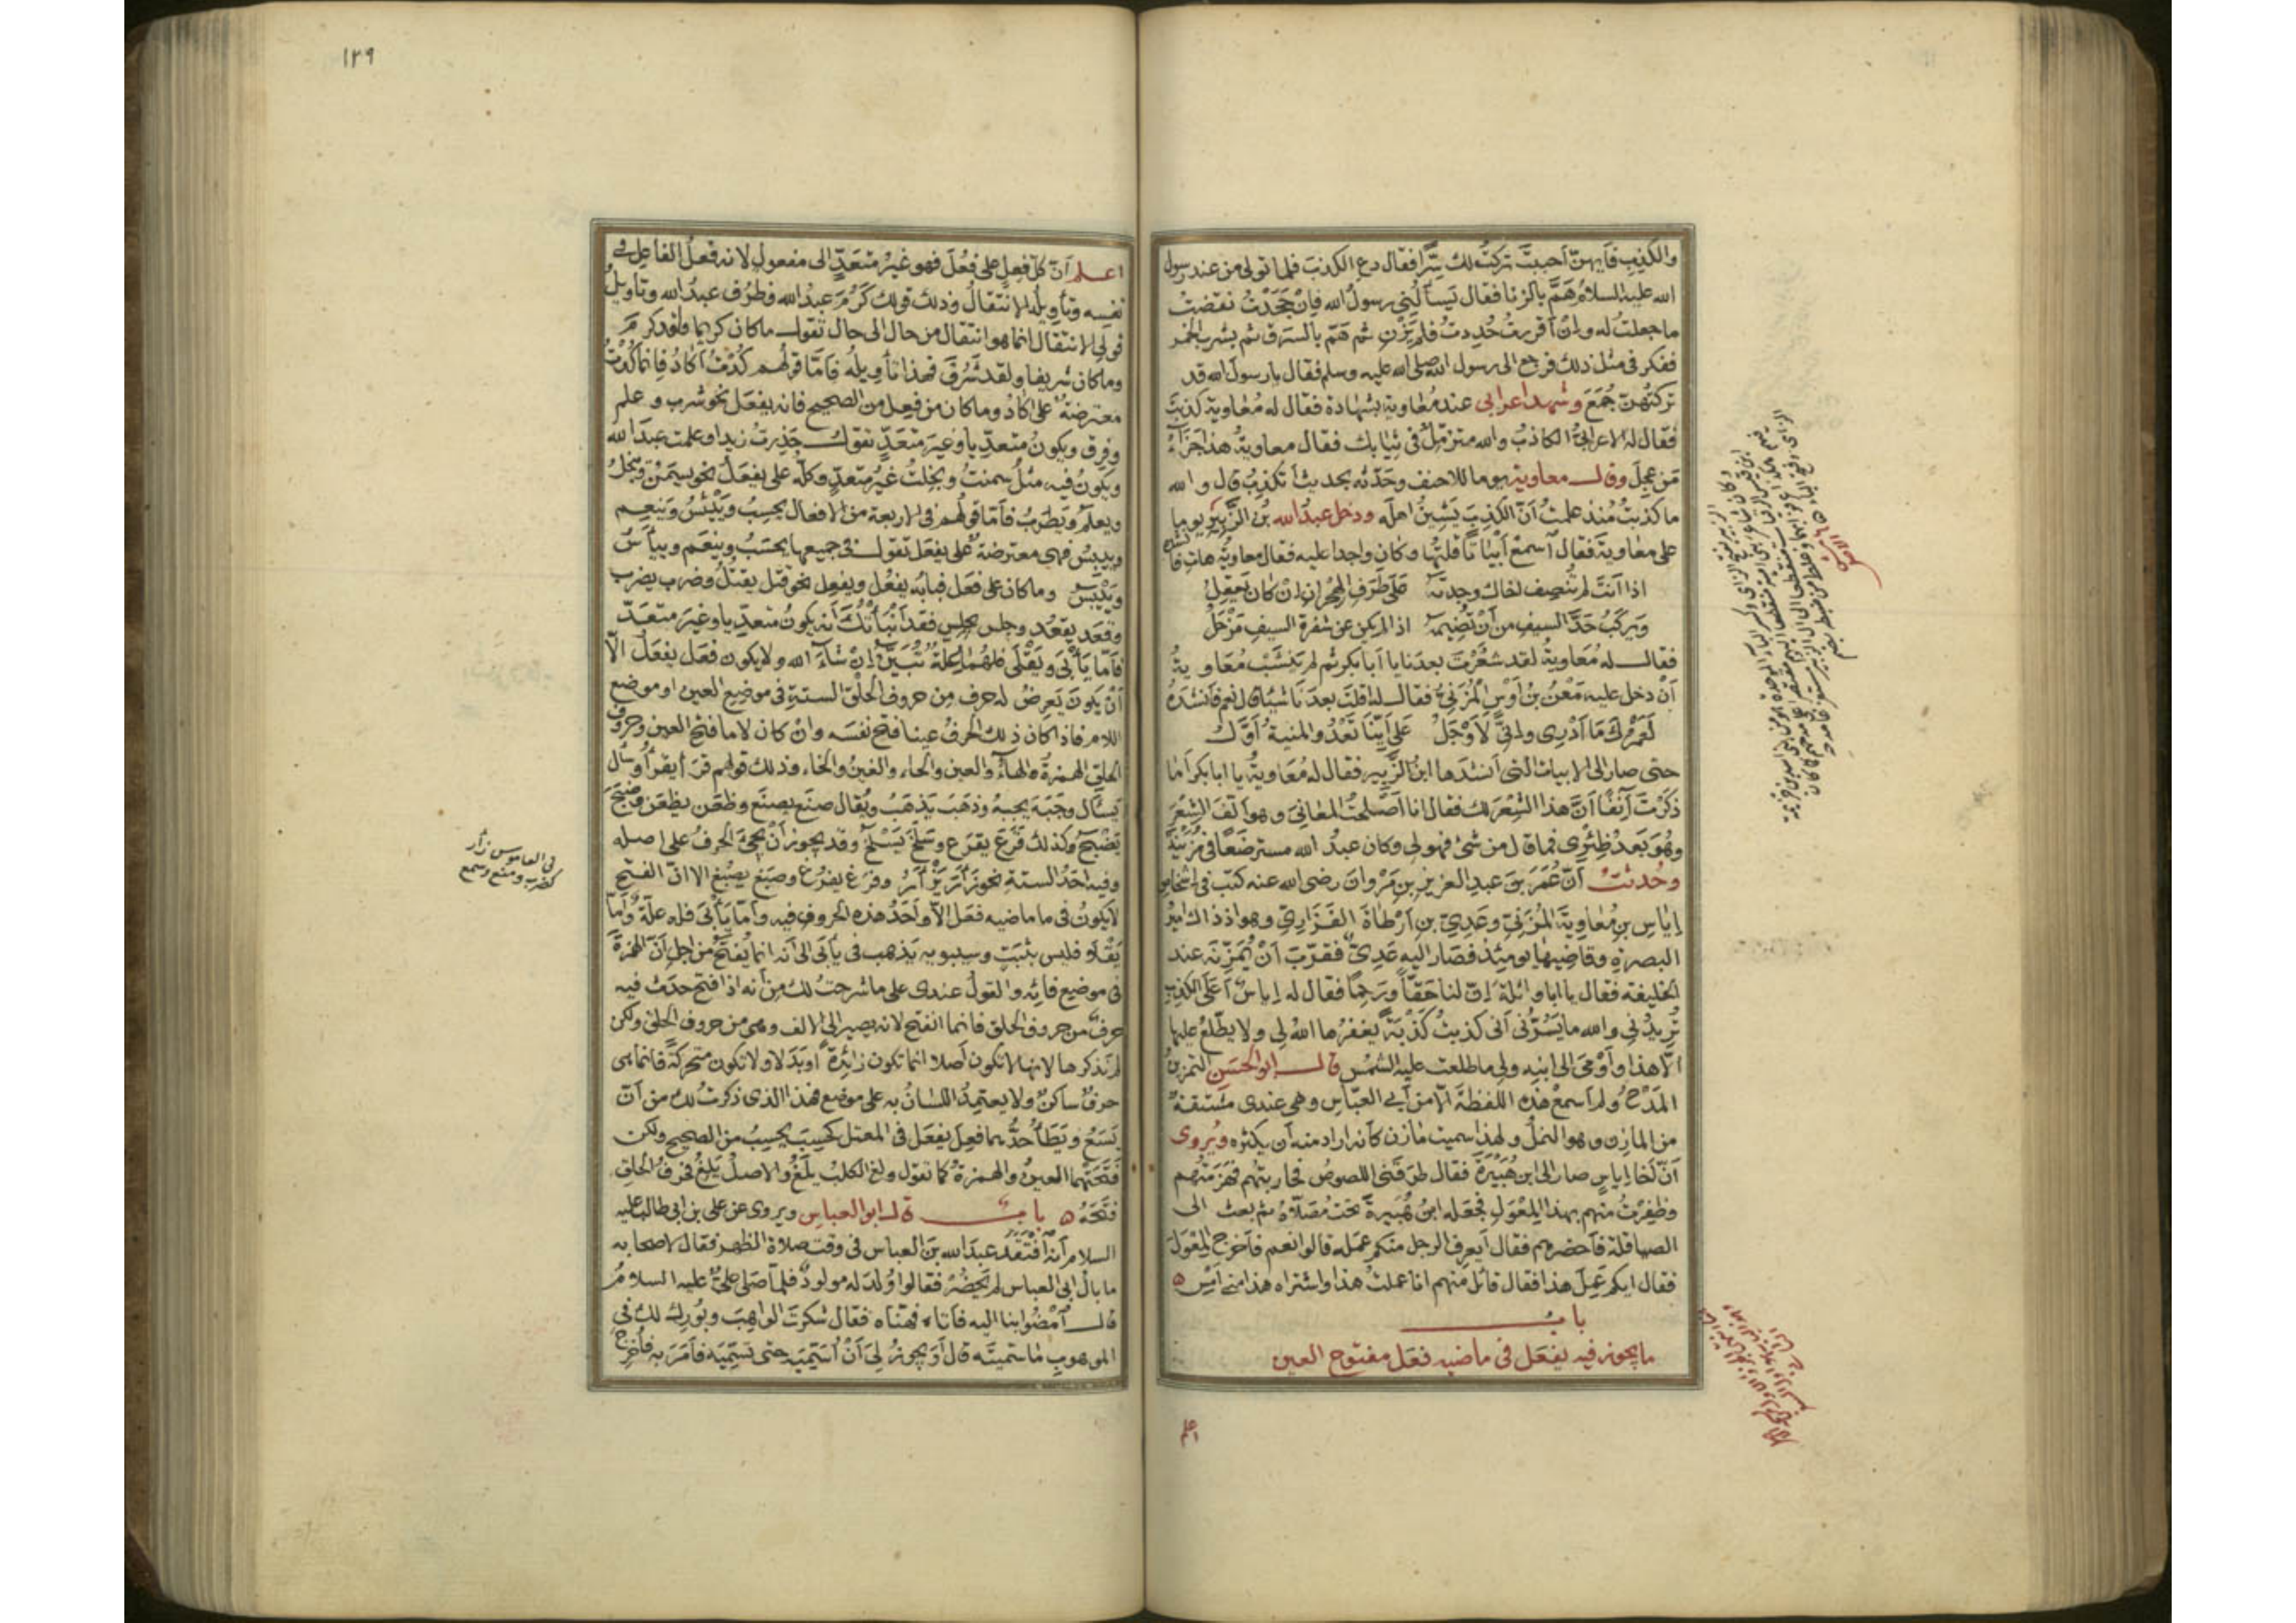 والكذب فأيهنّ أحببتَ تركتُ لك سِرًّا فقال دع الكذبَ فلما تولى من عند رسول
الله عليه السلامُ همَّ بالزنا فقال يَسألُني رسولُ الله فإنْ جَحَدْتُ نقضتُ
ما جعلتُ له وإنْ أقررتُ حُدِدتُ فلم يَزْنِ ثم همّ بالسَرَق ثم بشرب الخمر
ففكر فى مثل ذلك فرجع الى رسول الله صلى الله عليه وسلم فقال يا رسول الله قد
تركتُهنّ جُمَعَ وشهد اعرابى عند مُعاوية بشهادة فقال له مُعاوية كذبتَ
فقال له الاعرابىُّ الكاذبُ والله متزمِّلٌ فى ثيابك فقال معاويةُ هذا جَزَآءُ
مَن عجِلَ وقال معاوية يوما للاحنف وحَدّثه بحديث أتكذِبُ قال والله
ما كذبتُ منذ علمتُ أنّ الكذِبَ يَشِينُ اهلَه ودخل عبدُ الله بنُ الزُّبَير يوما
على معاويةَ فقال اسمعْ أبياتًا قلتُها وكان واجدا عليه فقال معاويةُ هاتِ فانشده
اذا أنتَ لم تُنصِف أخاك وجدتَه على طَرَفِ الهِجران إن كان يَعقِلُ
ويَركَبُ حَدَّ السيفِ من أنْ تَضِيمَه اذا لم يكن عن شفرة السيفِ مَزْحَلُ
فقال له مُعاويةُ لقد شَعُرْتَ بعدَنا يا أبا بكر ثم لم يَنشَبْ مُعاويةُ
أنْ دخل عليه مَعْنُ بنُ أوسٍ المُزَنىُّ فقال له أقلتَ بعدَنا شيئا قال نعم فأنشدَهُ
لَعَمْرُكَ مَا أَدْرِى وإنّى لَأَوْجَلُ عَلَى أيّنَا تَعْدُو المنيةُ أوَّلُ
حتى صار الى الابيات التى أنشدَها ابنُ الزُّبير فقال له مُعاويةُ يا ابا بكر أما
ذكَرْتَ آنفًا أنّ هذا الشِعرَ لك فقال انا أصلحتُ المعانىَ وهو ألّفَ الشِعْرَ
وهُوَ بَعدُ ظِئْرِى فما قال من شىْ فهو لى وكان عبدُ الله مسترضَعًا فى مُزَيْنةَ
وحُدثتُ أنّ عُمَرَ بنَ عبدِ العزيزِ بنِ مَرْوانَ رضى الله عنه كتبَ فى إشخاصِ
إياسِ بنِ مُعاويةَ المُزَنىِّ وعَدِىِّ بنِ أرْطاةَ الفَزَارِىِّ وهو اذذاك اميرُ
البصرةِ وقاضيها يومئذٍ فصار اليه عَدِىٌّ فقرّبَ أنْ يُمَزِّنَه عند
الخليفة فقال يا ابا واثلةَ إنّ لنا حَقّاً ورَحِمًا فقال له إياسٌ أعَلَى الكذِبِ
تُرِيدُنى والله ما يَسُرُّنى أنى كذبتُ كَذْبةً يغفرُها اللهُ لى ولا يطّلعُ عليها
الّا هذا وأوْمَى الى ابنِه ولى ما طلعت عليه الشمسُ قال ابو الحسَنِ التمزينُ
المَدْحُ ولم أسمعْ هذه اللفظةَ الّا من أبى العبّاسِ وهى عندى مشتقةٌ
من المازِنِ وهو النملُ ولهذا سميت مازن كأنه اراد منه أن يكثره ويُروى
أنّ أخا إياسٍ صار الى ابن هُبَيْرةَ فقال طَرَقَنى اللصوصُ فحاربتُهم فهزمتُهم
وظفِرْتُ منهم بهذا المِغْوَلِ فجعله ابنُ هُبَيرةَ تحتَ مُصَلّاهُ ثم بعث الى
الصياقلة فأحضرهم فقال أيعرِف الرجل منكم عمَله قالوا نعم فأخرج المِغْوَلَ
فقال ايكم عمِلَ هذا فقال قائل منهم انا عملتُ هذا واشتراه هذا منى أمْسِ
باب
ما يجوز فيه يفعَل فى ماضيه فعَل مفتوح العين
اعلم
١٢٩
اعلم أنّ كلّ فِعلٍ على فعُلَ فهو غيرُ متعَدٍّ الى مفعولٍ لانه فعلُ الفاعِل فى
نفسه وتأويلُه الانتقالُ وذلك قولك كَرُمَ عبدُ الله وظرُف عبدُ الله وتأويلُ
قولى الانتقال انما هو انتقال من حال الى حال تقول ما كان كريما ولقد كرُمَ
وما كان شريفا ولقد شَرُفَ فهذا تأويلُه فأمّا قولُهم كُدْتُ أكادُ فانما كُدْتُ
معترضةٌ على أكادُ وما كان من فعِل من الصحيح فانه يفعَل نحو شرِب وعلم
وفرِق ويكونُ متعدّيا وغيرَ متعَدٍّ تقول حَذِرتُ زيدا وعلمت عبدَ الله
ويكونُ فيه مثلُ سمنتُ وبَخِلتُ غيرُ متعدٍّ وكلّه على يفعَل نحو يسمَنُ ويبخلُ
ويعلَم ويَطرَبُ فأمّا قولُهم فى الاربعة من الافعال يحسِبُ ويَيْئسُ ويَنعِم
وييبِسُ فهى معترضةٌ على يفعَل تقول فى جميعها يحسَبُ وينعَم وييأسُ
ويَيْبَسُ وما كان على فعَل فبابُه يفعُل ويفعِل نحو قتل يقتُلُ وضرب يضرب
وقعَد يقعُد وجلس يجلِس فقد أنبأتُك أنه يكونُ متعدّيا وغيرَ متعَدٍّ
فأمّا يأبَى ويَقْلَى فلهما علّةٌ تُبَيَّنُ إنْ شآءَ الله ولا يكون فعَل يفعَل الّا
أنْ يكونَ يَعرِضُ له حرف من حروف الحلْق الستةِ فى موضِع العين او موضع
اللام فاذا كان ذلك الحرفُ عينا فتَح نفسَه وانْ كان لاما فتَح العين وحروفُ
الحلق الهمزةُ والهاءُ والعين والحاء والغينُ والخاء وذلك قولهم قرَأ يقرأ وسأل
يَسأل وجَبَهَ يجبهُ وذهَبَ يذهَبُ ويُقال صنَع يصنَع وظعَن يظعَن وضبَحَ
يَضْبَح وكذلك قرَعَ يقرَع وسَلَخَ يَسْلَخُ وقد يجوز أنْ يجىءَ الحرفُ على اصله
وفيه احَدُ الستةِ نحو زَأَرَ يَزْئِرُ وفرَغ يفرُغ وصبَغ يصبُغ الا انّ الفتح
لا يكونُ فى ما ماضيه فعَل الّا وأحَدُ هذه الحروف فيه وأمّا يأبَى فله علّةٌ وأمّا
يَقْلَى فليس بثَبَتٍ وسيبويه يَذهب فى يأبَى الى أنه انما يُفتَح من اجل أنّ الهمزةَ
فى موضِع فائِه والقولُ عندى على ما شرحتُ لك من أنه اذا فُتح حدَث فيه
حرفٌ من حروف الحلق فانما انفتح لانه يصير الى الالف وهى من حروف الحلق ولكن
لم نذكرها لانها لا تكون أصلا انما تكون زائِدةً أو بَدَلا ولا تكون متحركةً فانما هى
حرفٌ ساكنٌ ولا يعتمِدُ اللسانُ به على موضِع فهذا الذى ذكرتُ لك من أنّ
يَسَعُ ويَطَأُ حدُّهما فعِلَ يفعِل فى المعتل كحسِبَ يحسِبُ من الصحيح ولكن
فتَحَتْهما العينُ والهمزةُ كما تقول ولَغ الكلبُ يلَغُ والاصلُ يَلِغُ فحرفُ الحلق
فتَحَهُ باب قال ابو العباس ويروى عن على بن ابى طالب عليه
السلام أنّه افْتَقَدَ عبدَ الله بنَ العباس فى وقت صلاة الظهر فقال لاصحابه
ما بالُ ابى العباس لم يَحضُرْ فقالوا وُلدَ له مولودٌ فلمّا صَلّى علىٌّ عليه السلامُ
قال امْضُوا بنا اليه فأتاه فهنّاه فقال شكرتَ الواهبَ وبُورِك لك فى
الموهوب ما سمّيتَه قال أوَيجوزُ لى أنْ أسَمّيَه حتى تسمّيَه فأمَرَ به فأخرج
فى القاموس زأر
كضرب ومنع وسمع